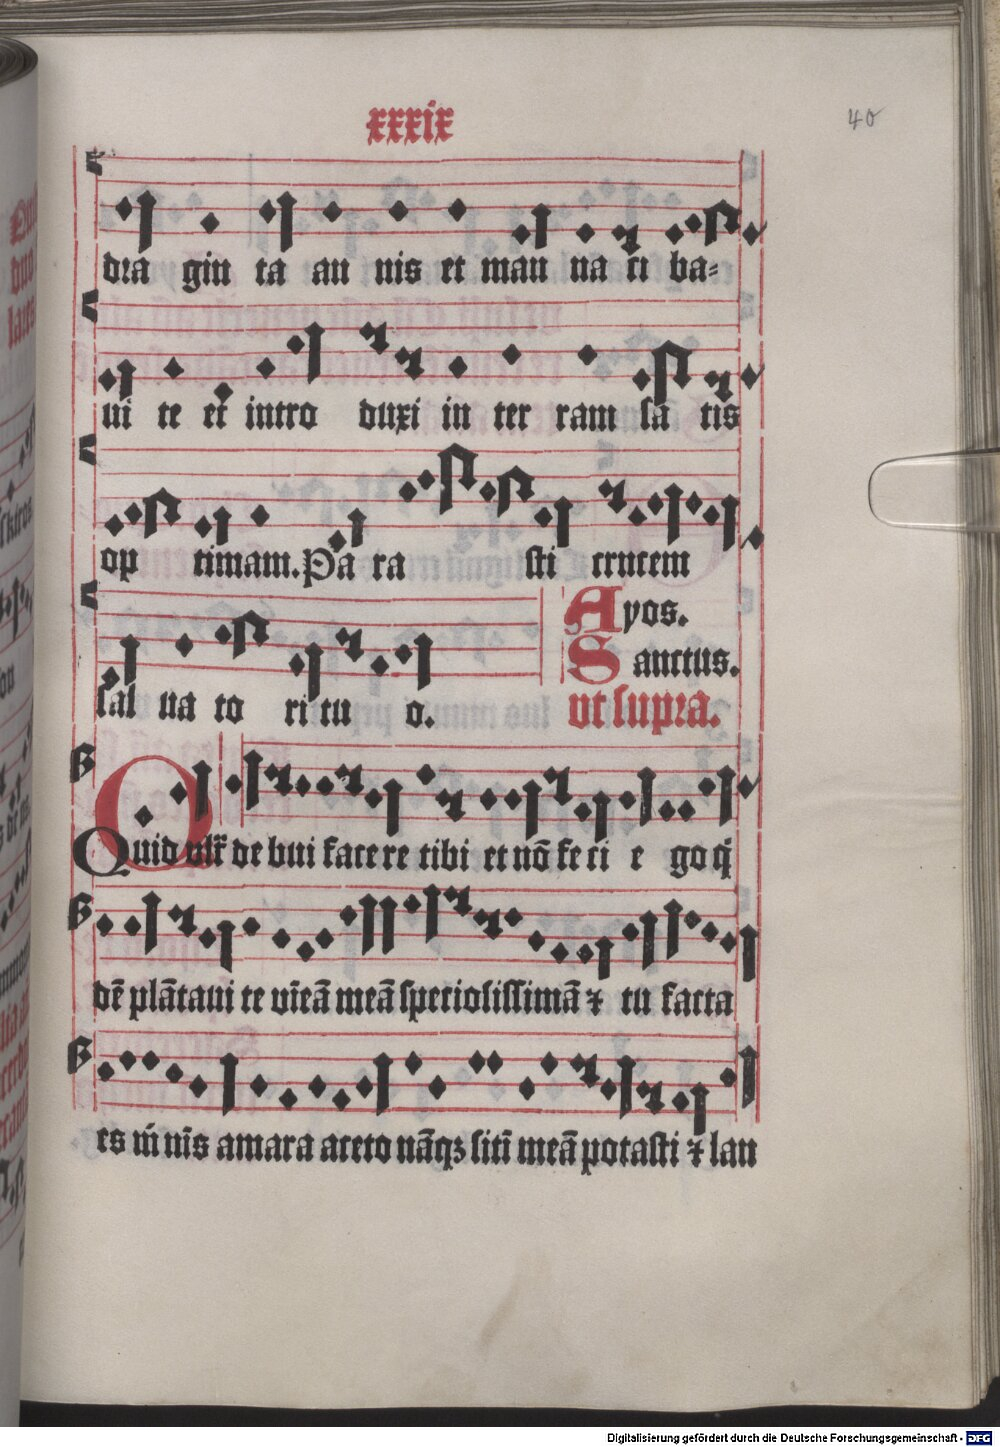 xxxix
40
dra gin ta an nis et man na ci ba=
ui te et intro duxi in ter ram sa tis
op timam. Pa ra sti crucem
Ayos.
Sanctus.
sal ua to ri tu o.
ut supra.
Quid vlt̃ de bui facere tibi et nō feci e go q̇
dē plātaui te vīeā meā speciosissimā ⁊ tu facta
es m̄ nīs amara aceto nāqꝫ sitī meā potasti ⁊ lan
Digitalisierung gefördert durch die Deutsche Forschungsgemeinschaft - DFG